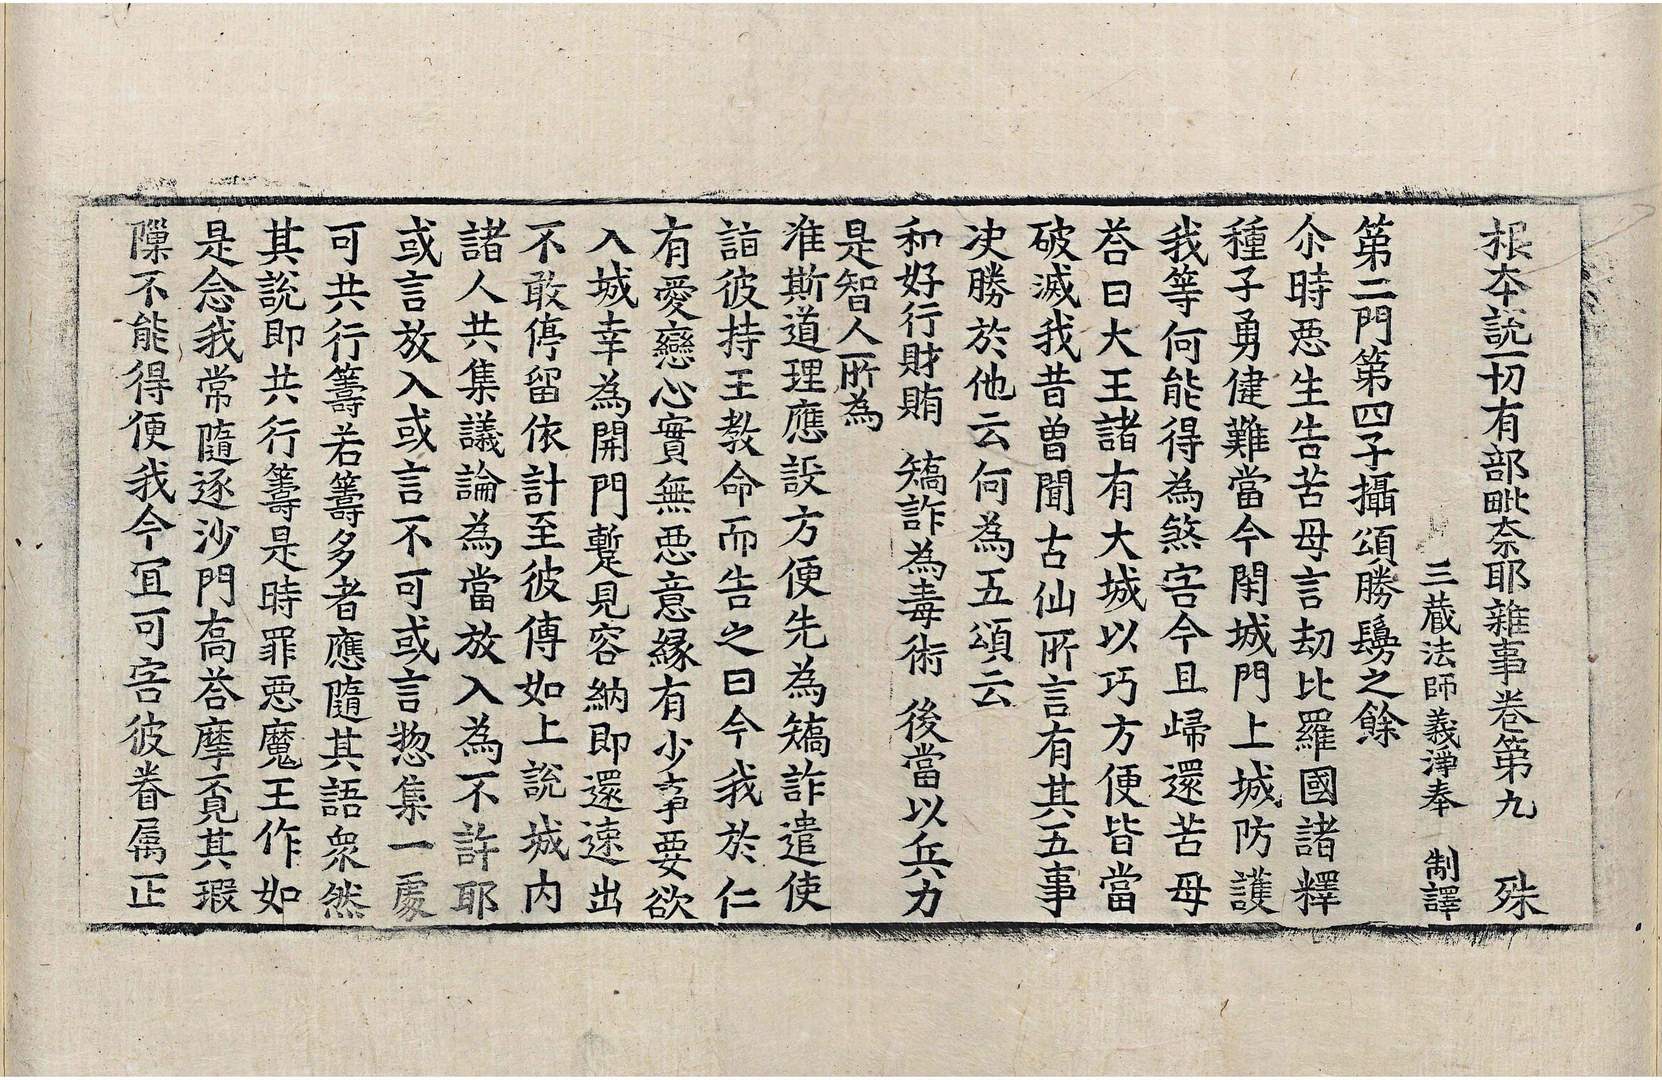 根本説一切有部毗奈耶雜事卷第九　殊
三藏法師義淨奉　制譯
第二門第四子攝頌勝鬘之餘
尒時惡生告苦母言劫比羅國諸釋
種子勇健難當今閇城門上城防護
我等何能得為煞害今且歸還苦母
荅曰大王諸有大城以巧方便皆當
破滅我昔曾聞古仙所言有其五事
决勝於他云何為五頌云
和好行財賄　矯詐為毒術　後當以兵力
是智人所為
准斯道理應設方便先為矯詐遣使
詣彼持王教命而告之曰今我於仁
有愛戀心實無惡意緣有少事要欲
入城幸為開門蹔見容納即還速出
不敢停留依計至彼傳如上説城內
諸人共集議論為當放入為不許耶
或言放入或言不可或言惣集一處
可共行籌若籌多者應隨其語衆然
其說即共行籌是時罪惡魔王作如
是念我常隨逐沙門喬荅摩覓其瑕
隟不能得便我今冝可害彼眷属正